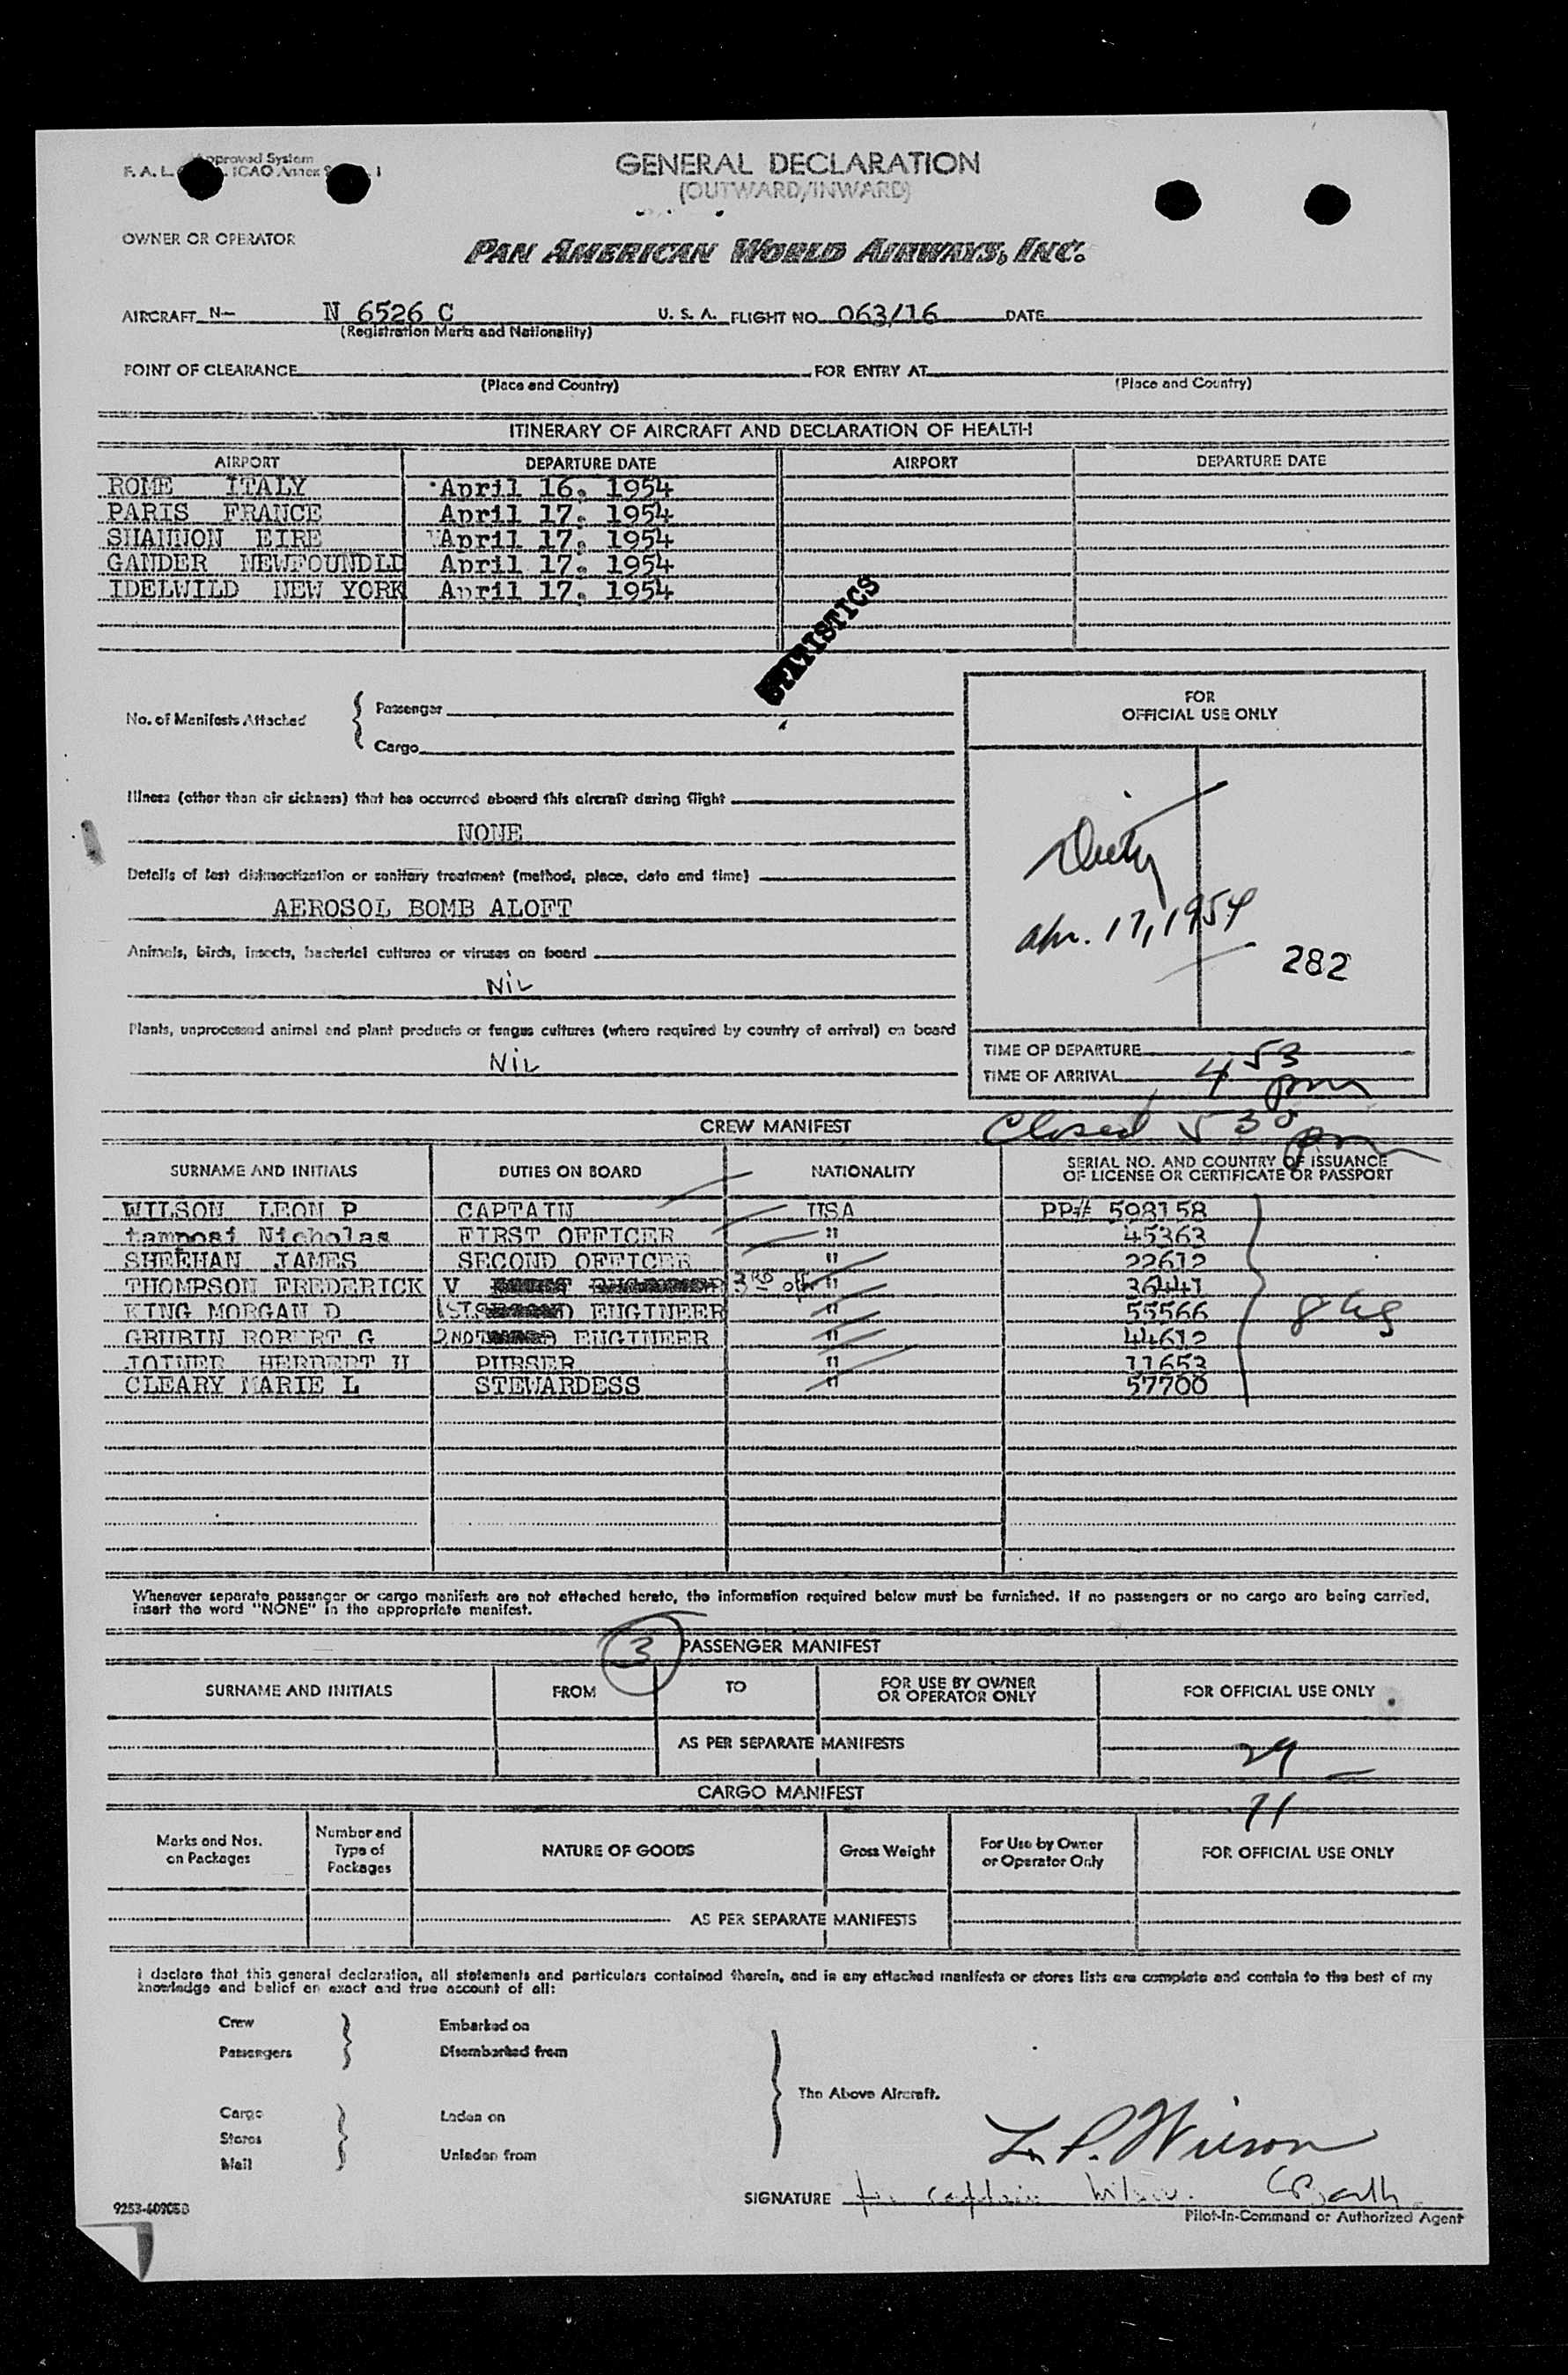 Approved System
F. A. L. ICAO Annex 9 1
GENERAL DECLARATION
(OUTWARD/INWARD)
OWNER OR OPERATOR
PAN AMERICAN WORLD AIRWAYS, INC.
AIRCRAFT N— N 6526 C U. S. A. FLIGHT NO. 063/16 DATE
(Registration Marks and Nationality)
POINT OF CLEARANCE FOR ENTRY AT
(Place and Country) (Place and Country)
ITINERARY OF AIRCRAFT AND DECLARATION OF HEALTH
AIRPORT DEPARTURE DATE AIRPORT DEPARTURE DATE
ROME ITALY April 16, 1954
PARIS FRANCE April 17, 1954
SHANNON EIRE April 17, 1954
GANDER NEWFOUNDLD April 17, 1954
IDELWILD NEW YORK April 17, 1954
STATISTICS
FOR
OFFICIAL USE ONLY
No. of Manifests Attached
Passenger
Cargo
Illness (other than air sickness) that has occurred aboard this aircraft during flight
NONE
Details of last disinsectization or sanitary treatment (method, place, date and time)
AEROSOL BOMB ALOFT
Apr. 17, 1954
282
Animals, birds, insects, bacterial cultures or viruses on board
NiL
Plants, unprocessed animal and plant products or fungus cultures (where required by country of arrival) on board
NiL
TIME OF DEPARTURE
TIME OF ARRIVAL 4 53 pm
Closed 5 30 pm
CREW MANIFEST
SURNAME AND INITIALS DUTIES ON BOARD NATIONALITY SERIAL NO. AND COUNTRY OF ISSUANCE
OF LICENSE OR CERTIFICATE OR PASSPORT
WILSON LEON P CAPTAIN USA PP# 598158
tamposi Nicholas FIRST OFFICER " 45363
SHEEHAN JAMES SECOND OFFICER " 22612
THOMPSON FREDERICK V 3RD off " 36441
KING MORGAN D 1ST ENGINEER " 55566
GRUBIN ROBERT G 2ND ENGINEER " 44612
JOINER HERBERT H PURSER " 11653
CLEARY MARIE L STEWARDESS " 57700
Whenever separate passenger or cargo manifests are not attached hereto, the information required below must be furnished. If no passengers or no cargo are being carried,
insert the word "NONE" in the appropriate manifest.
3 PASSENGER MANIFEST
SURNAME AND INITIALS FROM TO FOR USE BY OWNER
OR OPERATOR ONLY FOR OFFICIAL USE ONLY
AS PER SEPARATE MANIFESTS
29
CARGO MANIFEST
71
Marks and Nos.
on Packages Number and
Type of
Packages NATURE OF GOODS Gross Weight For Use by Owner
or Operator Only FOR OFFICIAL USE ONLY
AS PER SEPARATE MANIFESTS
I declare that this general declaration, all statements and particulars contained therein, and in any attached manifests or stores lists are complete and contain to the best of my
knowledge and belief an exact and true account of all:
Crew Embarked on
Passengers Disembarked from
The Above Aircraft.
Cargo Laden on
Stores
Mail Unladen from
L. P. Wilson
SIGNATURE for captain Wilson.
9253-60905B
Pilot-In-Command or Authorized Agent